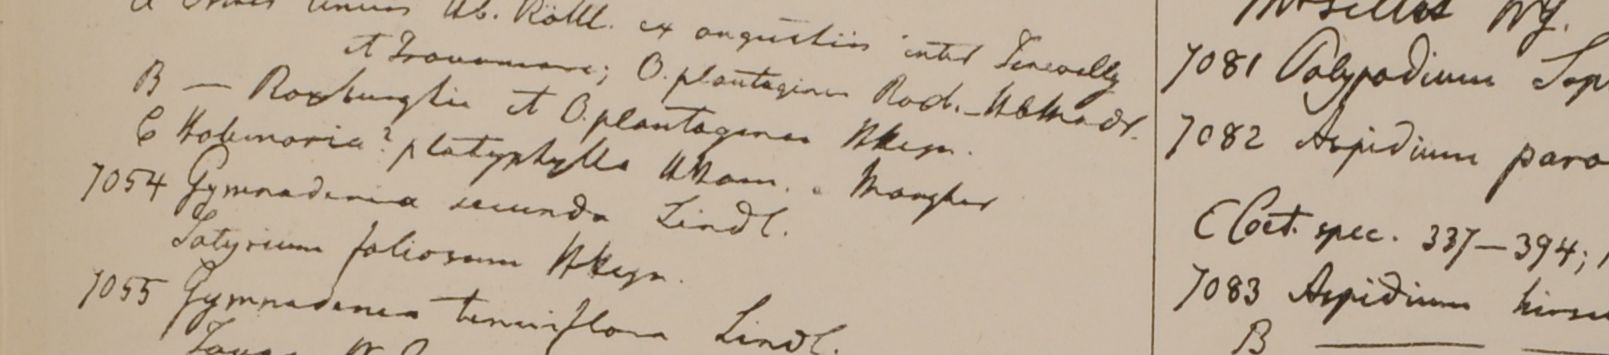 Hb. Rottl. ex angustiis inter Tinevelly
et Travancore; O. plantaginea Rod. - Hb Madr.
B — Roxburghii et O. plantaginea Hkeyn.
C Habenaria? platyphylla HHam. Monghir
7054 Gymnadenia secunda Lindl.
Satyrium foliosum Hkeyn.
7055 Gymnadenia tenuiflora Lindl.
7081 Polypodium
7082 Aspidium para
C Coct. spec. 337—394;
7083 Aspidium hirsu
B —